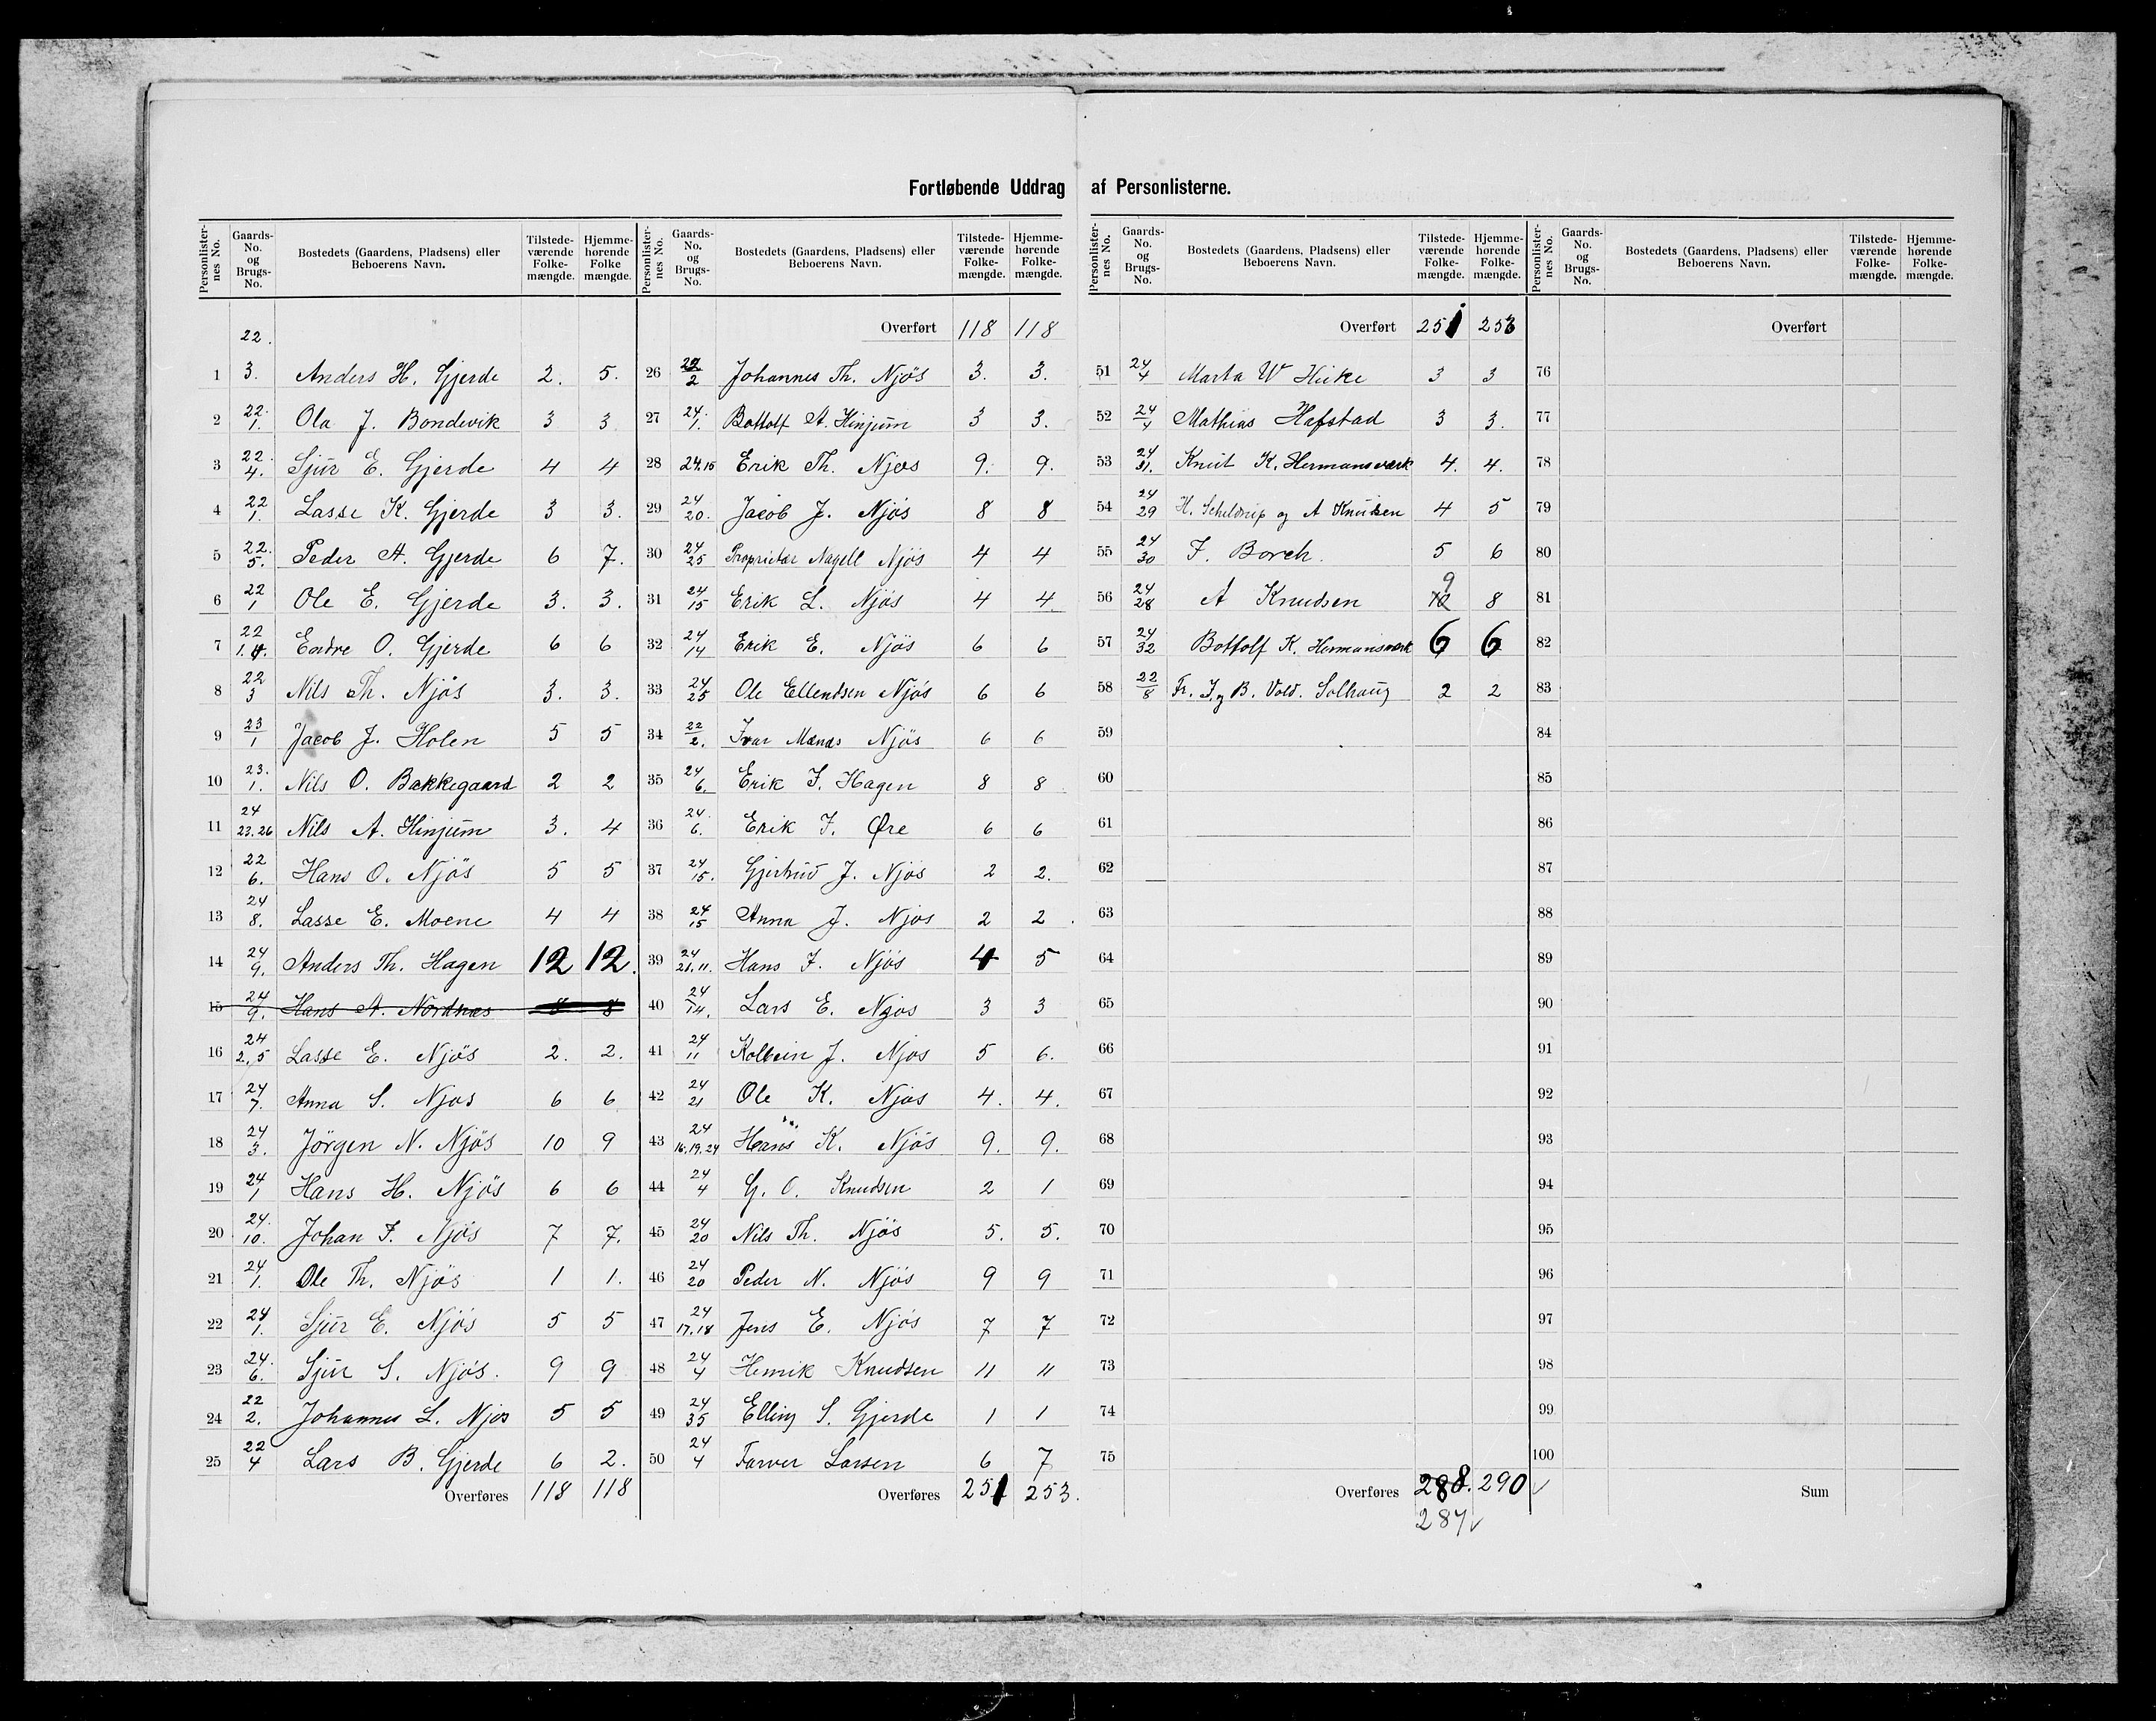 Fortløbende Uddrag af Personlisterne.
Personlister-nes No. Gaards-No. og Brugs-No. Bostedets (Gaardens, Pladsens) eller Beboerens Navn. Tilstede-værende Folke-mængde. Hjemme-hørende Folke mængde.
1 22. 3. Anders H. Gjerde 2. 5.
2 22. 1. Ola J. Bondevik 3 3
3 22. 4. Sjur E. Gjerde 4 4
4 22 1. Lasse K. Gjerde 3 3.
5 22. 5. Peder A. Gjerde 6 7.
6 22 1 Ole E. Gjerde 3. 3.
7 22 1.4. Endre O. Gjerde 6 6
8 22 3 Nils Th. Njøs 3. 3.
9 23 1 Jacob J. Holen 5 5
10 23. 1. Nils O. Bakkegaard 2 2
11 24 23.26 Nils A. Hinjum 3. 4
12 22 6. Hans O. Njös 5 5
13 24 8. Lasse E. Moene 4 4
14 24 9. Anders Th. Hagen 12 12.
15 24 9. Hans A. Nordnæs 8 8
16 24 2.5 Lasse E. Njös 2. 2.
17 24 7. Anna S. Njøs 6 6
18 24 3. Jörgen N. Njös 10 9
19 24 1 Hans H. Njös 6 6
20 24. 10. Johan F. Njös 7 7.
21 24 1. Ole Th. Njös 1 1.
22 24 1. Sjur E. Njös 5 5
23 24. 6. Sjur S. Njös. 9 9
24 22 2. Johannes L. Njos 5 5
25 22 4 Lars B. Gjerde 6 2.
Overføres 118 118
Personlister-nes No. Gaards-No. og Brugs-No. Bostedets (Gaardens, Pladsens) eller Beboerens Navn. Tilstede-værende Folke-mængde. Hjemme-hørende Folke-mængde.
Overført 118 118
26 22 2 Johannes Th. Njös 3. 3.
27 24. 1. Bottolf A. Hinjum 3 3.
28 24.15 Erik Th. Njøs 9. 9.
29 24 20. Jacob J. Njös 8 8
30 24 25 Proprietær Nagell Njös 4 4
31 24 15 Erik L. Njös 4 4
32 24 14 Erik E. Njös 6 6
33 24 25 Ole Ellendsen Njös 6 6
34 22 2. Ivar Manas Njös 6 6
35 24 6. Erik J. Hagen 8 8
36 24. 6. Erik J. Øre 6 6
37 24 15. Gjertrud J. Njøs 2 2.
38 24 15 Anna J. Njos 2 2
39 24 21.11. Hans J. Njös 4 5
40 24 14. Lars E. Njos 3 3
41 24 11 Kolbein J. Njos 5 6.
42 24 21 Ole K. Njøs 4. 4.
43 24 16.19.24 Hans K. Njös 9. 9.
44 24 4 G. O. Knudsen 2 1
45 24 20 Nils Th. Njös 5. 5.
46 24 20 Peder N. Njös 9 9
47 24 17.18 Jens E. Njös 7 7
48 24 4 Henrik Knudsen 11 11
49 24 35 Elling S. Gjerde 1 1
50 24 4 Farver Larsen 6 7
Overføres 251 253.
Personlister-nes No. Gaards-No. og Brugs-No. Bostedets (Gaardens, Pladsens) eller Beboerens Navn. Tilstede-værende Folke-mængde. Hjemme-hørende Folke-mængde.
Overført 251 253
51 24 4 Marta W 3 3
52 24 4 Mathias Hafstad 3 3.
53 24 31. Knut K. Hermansværk 4. 4.
54 24 29 H. Scheldrup og A Knudsen 4 5
55 24 30 F. Borch. 5 6
56 24 28 A Knudsen 10 9 8
57 24 32 Bottolf K. Hermansværk 6 6
58 22 8 Fr. J.g B. Vold. Solhaug 2 2
59
60
61
62
63
64
65
66
67
68
69
70
71
72
73
74
75
Overføres 288. 290 ✓
287 ✓
Personlister-nes No. Gaards-No. og Brugs-No. Bostedets (Gaardens, Pladsens) eller Beboerens Navn. Tilstede-værende Folke-mængde. Hjemme-hørende Folke-mængde.
Overført
76
77
78
79
80
81
82
83
84
85
86
87
88
89
90
91
92
93
94
95
96
97
98
99
100
Sum